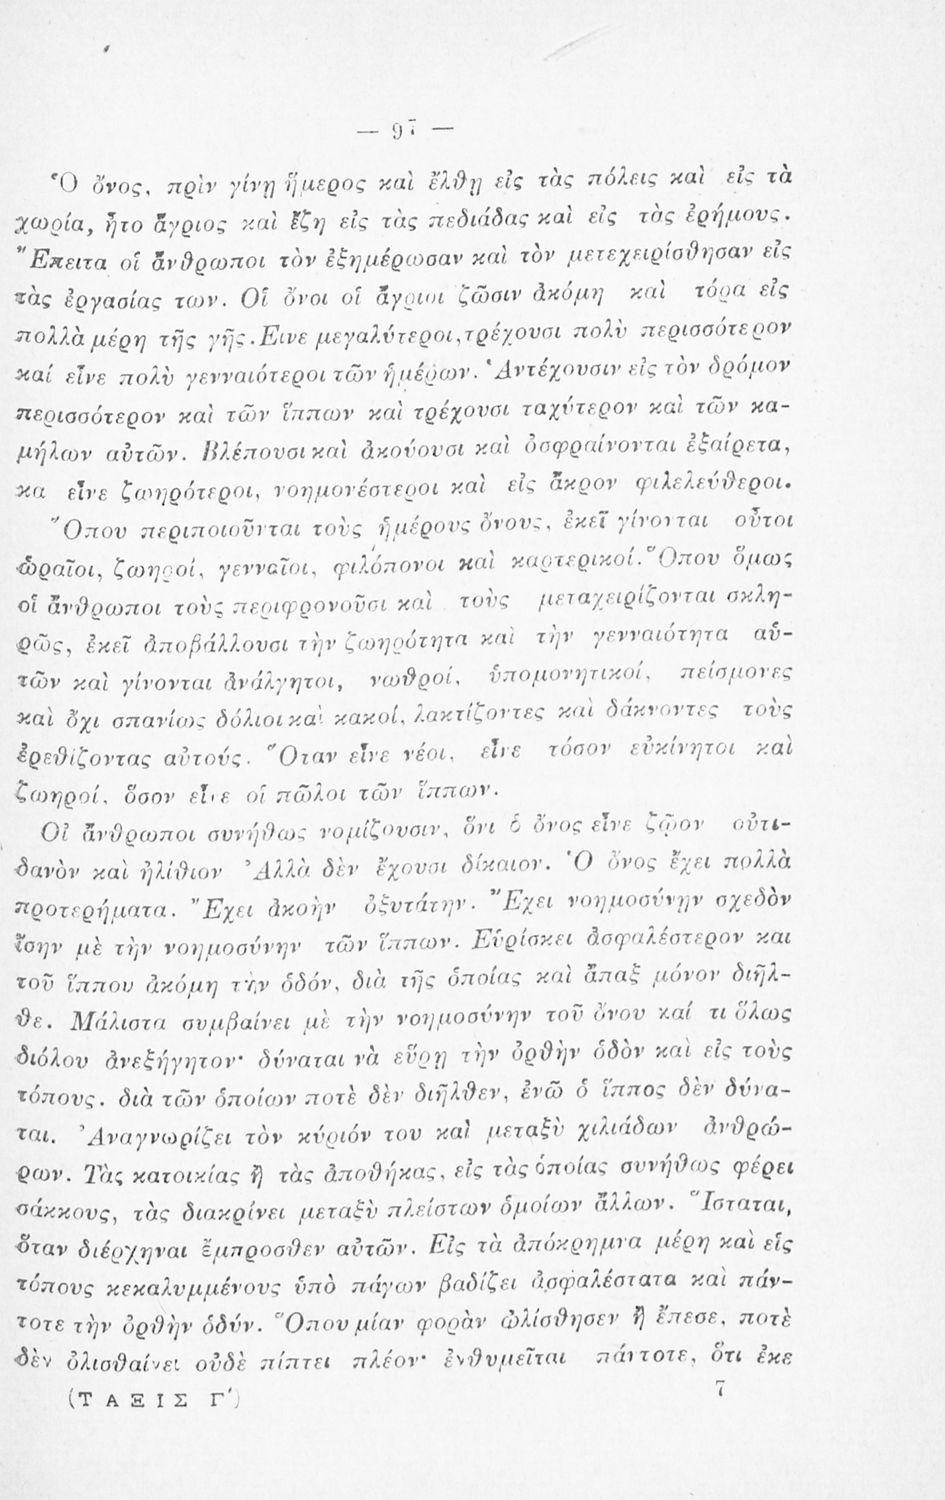 — 97 —
Ὁ ὄνος, πρὶν γίνῃ ἥμερος καὶ ἔλθῃ εἰς τὰς πόλεις καὶ εἰς τὰ
χωρία, ἦτο ἄγριος καὶ ἔζη εἰς τὰς πεδιάδας καὶ εἰς τὰς ἐρήμους.
Ἔπειτα οἱ ἄνθρωποι τὸν ἐξημέρωσαν καὶ τὸν μετεχειρίσθησαν εἰς
τὰς ἐργασίας των. Οἱ ὄνοι οἱ ἄγριοι ζῶσιν ἀκόμη καὶ τόρα εἰς
πολλὰ μέρη τῆς γῆς. Εινε μεγαλύτεροι, τρέχουσι πολὺ περισσότερον
καί εἶνε πολὺ γενναιότεροι τῶν ἡμέρων. Ἀντέχουσιν εἰς τὸν δρόμον
περισσότερον καὶ τῶν ἵππων καὶ τρέχουσι ταχύτερον καὶ τῶν κα-
μήλων αὐτῶν. Βλέπουσι καὶ ἀκούουσι καὶ ὀσφραίνονται ἐξαίρετα,
κα εἶνε ζωηρότεροι, νοημονέστεροι καὶ εἰς ἄκρον φιλελεύθεροι.
Ὅπου περιποιοῦνται τοὺς ἡμέρους ὄνους, ἐκεῖ γίνονται οὗτοι
ὡραῖοι, ζωηροί, γενναῖοι, φιλόπονοι καὶ καρτερικοί. Ὅπου ὅμως
οἱ ἄνθρωποι τοὺς περιφρονοῦσι καὶ τοὺς μεταχειρίζονται σκλη-
ρῶς, ἐκεῖ ἀποβάλλουσι τὴν ζωηρότητα καὶ τὴν γενναιότητα αὑ-
τῶν καὶ γίνονται ἀνάλγητοι, νωθροί, ὑπομονητικοί, πείσμονες
καὶ ὄχι σπανίως δόλιοι καὶ κακοί, λακτίζοντες καὶ δάκνοντες τοὺς
ἐρεθίζοντας αὐτούς. Ὅταν εἶνε νέοι, εἶνε τόσον εὐκίνητοι καὶ
ζωηροί, ὅσον εἶνε οἱ πῶλοι τῶν ἵππων.
Οἱ ἄνθρωποι συνήθως νομίζουσιν, ὅνι ὁ ὄνος εἶνε ζῷον οὐτι-
δανὸν καὶ ἠλίθιον Ἀλλὰ δὲν ἔχουσι δίκαιον. Ὁ ὄνος ἔχει πολλὰ
προτερήματα. Ἔχει ἀκοὴν ὀξυτάτην. Ἔχει νοημοσύνην σχεδὸν
ἴσην μὲ τὴν νοημοσύνην τῶν ἵππων. Εὑρίσκει ἀσφαλέστερον και
τοῦ ἵππου ἀκόμη τὴν ὁδόν, διὰ τῆς ὁποίας καὶ ἅπαξ μόνον διῆλ-
θε. Μάλιστα συμβαίνει μὲ τὴν νοημοσύνην τοῦ ὄνου καί τι ὅλως
διόλου ἀνεξήγητον· δύναται νὰ εὕρῃ τὴν ὀρθὴν ὁδὸν καὶ εἰς τοὺς
τόπους. διὰ τῶν ὁποίων ποτὲ δὲν διῆλθεν, ἐνῶ ὁ ἵππος δὲν δύνα-
ται. Ἀναγνωρίζει τὸν κύριόν του καὶ μεταξὺ χιλιάδων ἀνθρώ-
ρων. Τὰς κατοικίας ἢ τὰς ἀποθήκας, εἰς τὰς ὁποίας συνήθως φέρει
σάκκους, τὰς διακρίνει μεταξὺ πλείστων ὁμοίων ἄλλων. Ἵσταται,
ὅταν διέρχηναι ἔμπροσθεν αὐτῶν. Εἰς τὰ ἀπόκρημνα μέρη καὶ εἰς
τόπους κεκαλυμμένους ὑπὸ πάγων βαδίζει ἀσφαλέστατα καὶ πάν-
τοτε τὴν ὀρθὴν ὁδύν. Ὅπου μίαν φορὰν ὠλίσθησεν ἢ ἔπεσε, ποτὲ
δὲν ὀλισθαίνει οὐδὲ πίπτει πλέον· ἐνθυμεῖται πάντοτε, ὅτι ἐκε
(ΤΑΞΙΣ Γ΄) 7